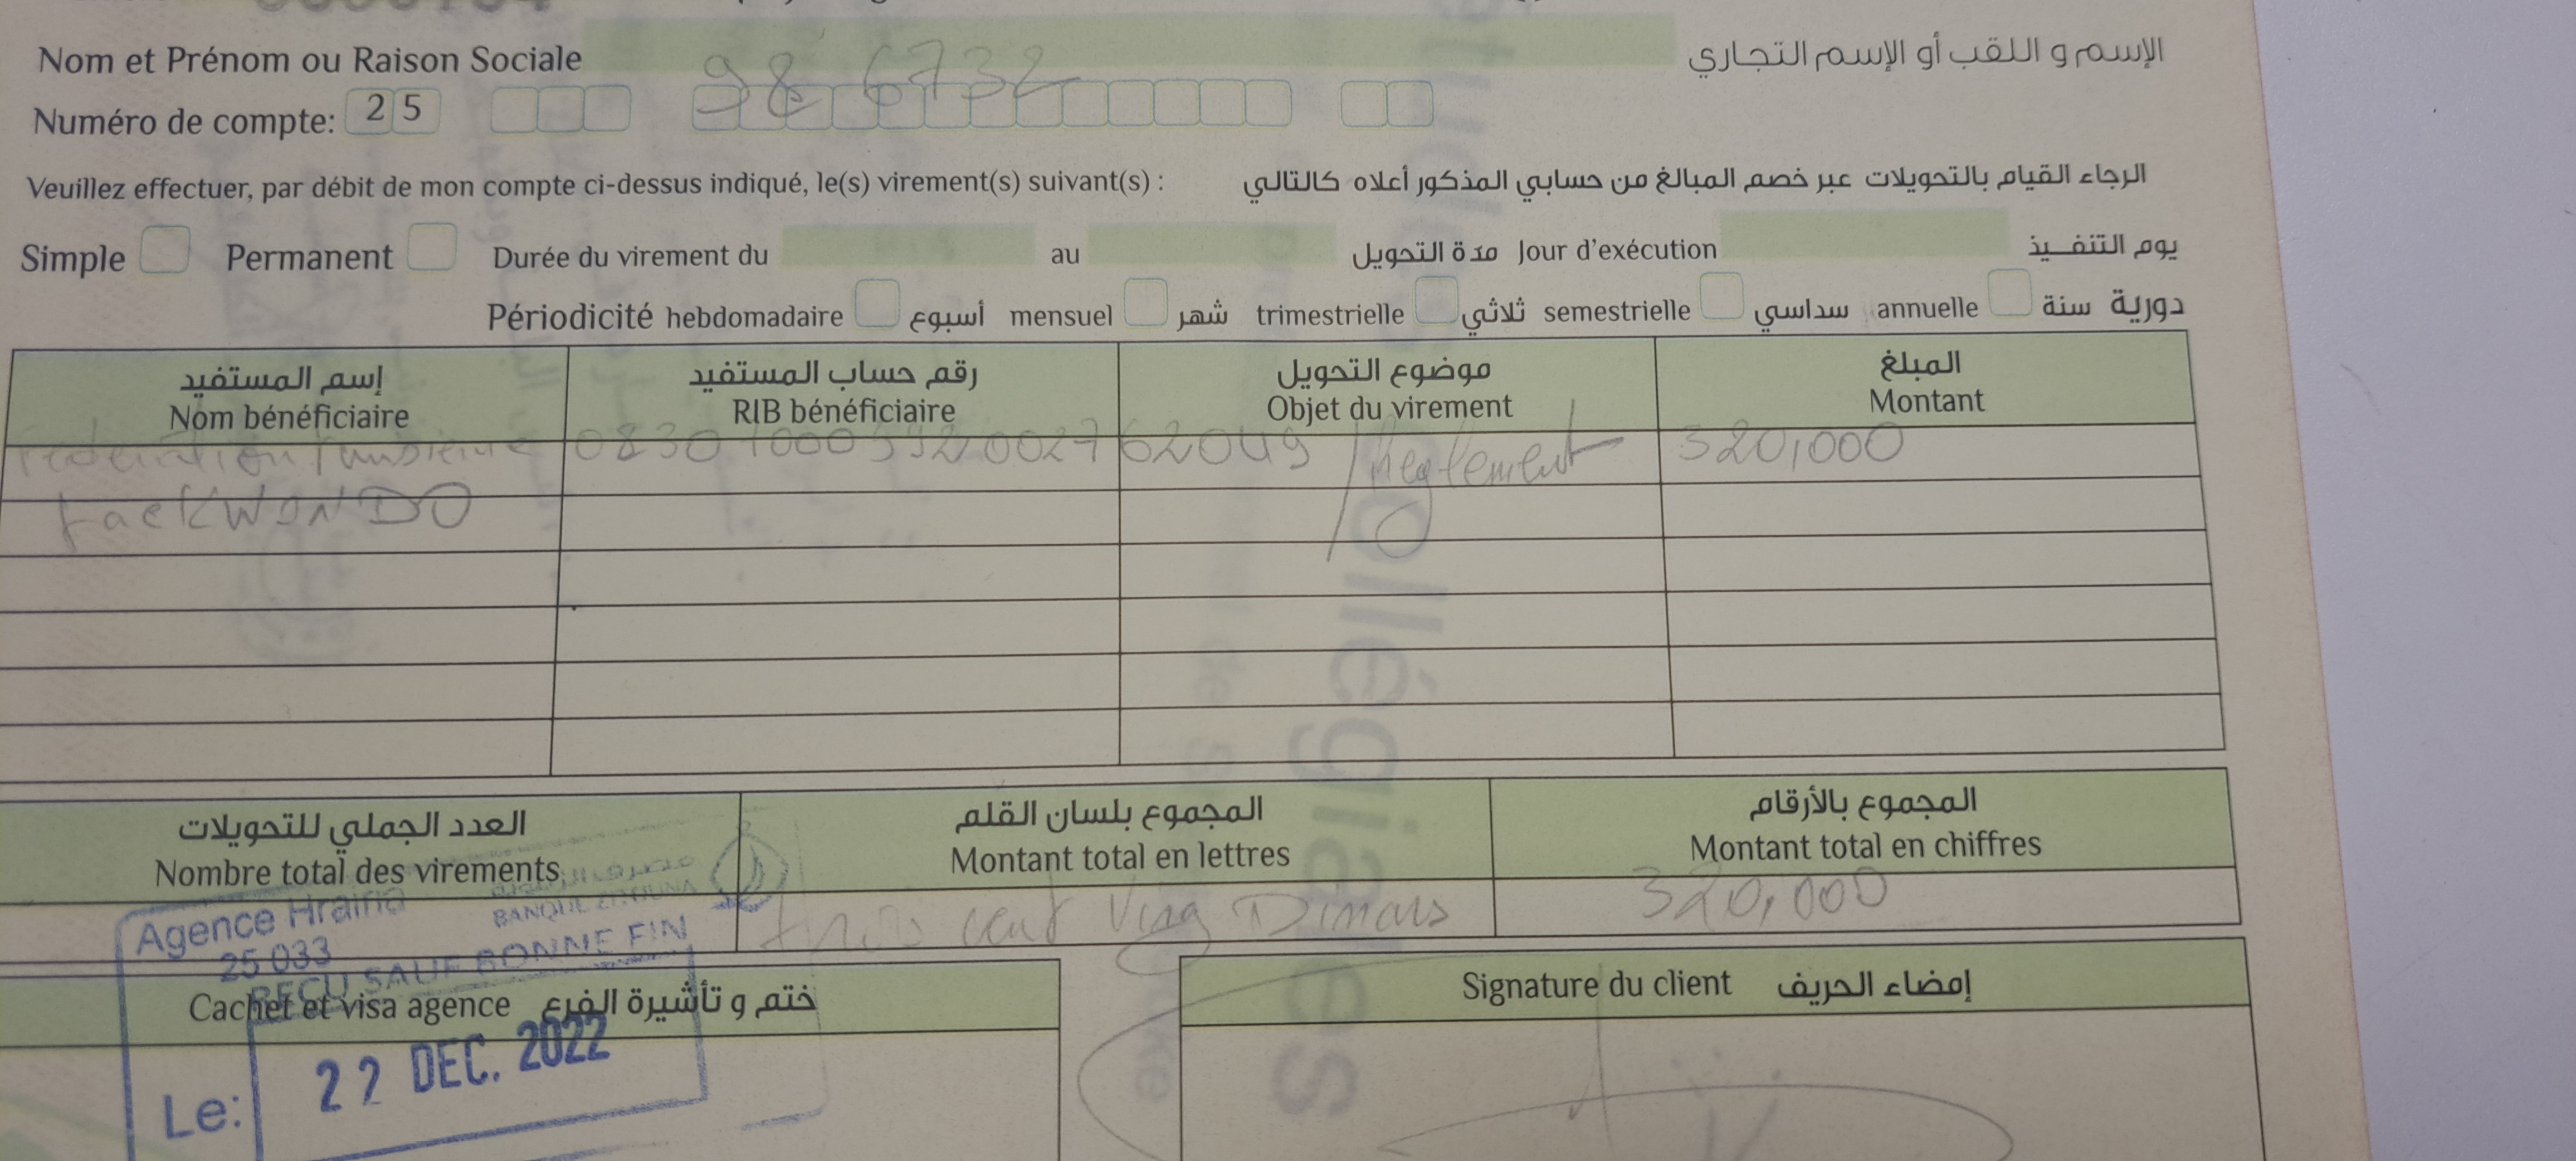 Nom et Prénom ou Raison Sociale الإسم و اللقب أو الإسم التجاري
98 6732
Numéro de compte: 25
Veuillez effectuer, par débit de mon compte ci-dessus indiqué, le(s) virement(s) suivant(s) : الرجاء القيام بالتحويلات عبر خصم المبالغ من حسابي المذكور أعلاه كالتالي
Simple Permanent Durée du virement du au مدة التحويل Jour d'exécution يوم التنفيذ
Périodicité hebdomadaire أسبوع mensuel شهر trimestrielle ثلاثي semestrielle سداسي annuelle دورية سنة
إسم المستفيد رقم حساب المستفيد موضوع التحويل المبلغ
Nom bénéficiaire RIB bénéficiaire Objet du virement Montant
Federation Tunisienne Reglement 320,000
taeKWONDO
العدد الجملي للتحويلات المجموع بلسان القلم المجموع بالأرقام
Nombre total des virements Montant total en lettres Montant total en chiffres
trois cent Ving Dinars 320,000
BANQUE ZITOUNA
Agence Hraïria
25 033
RECU SAUF BONNE FIN
Cachet et visa agence ختم و تأشيرة الفرع Signature du client إمضاء الحريف
Le: 22 DEC. 2022